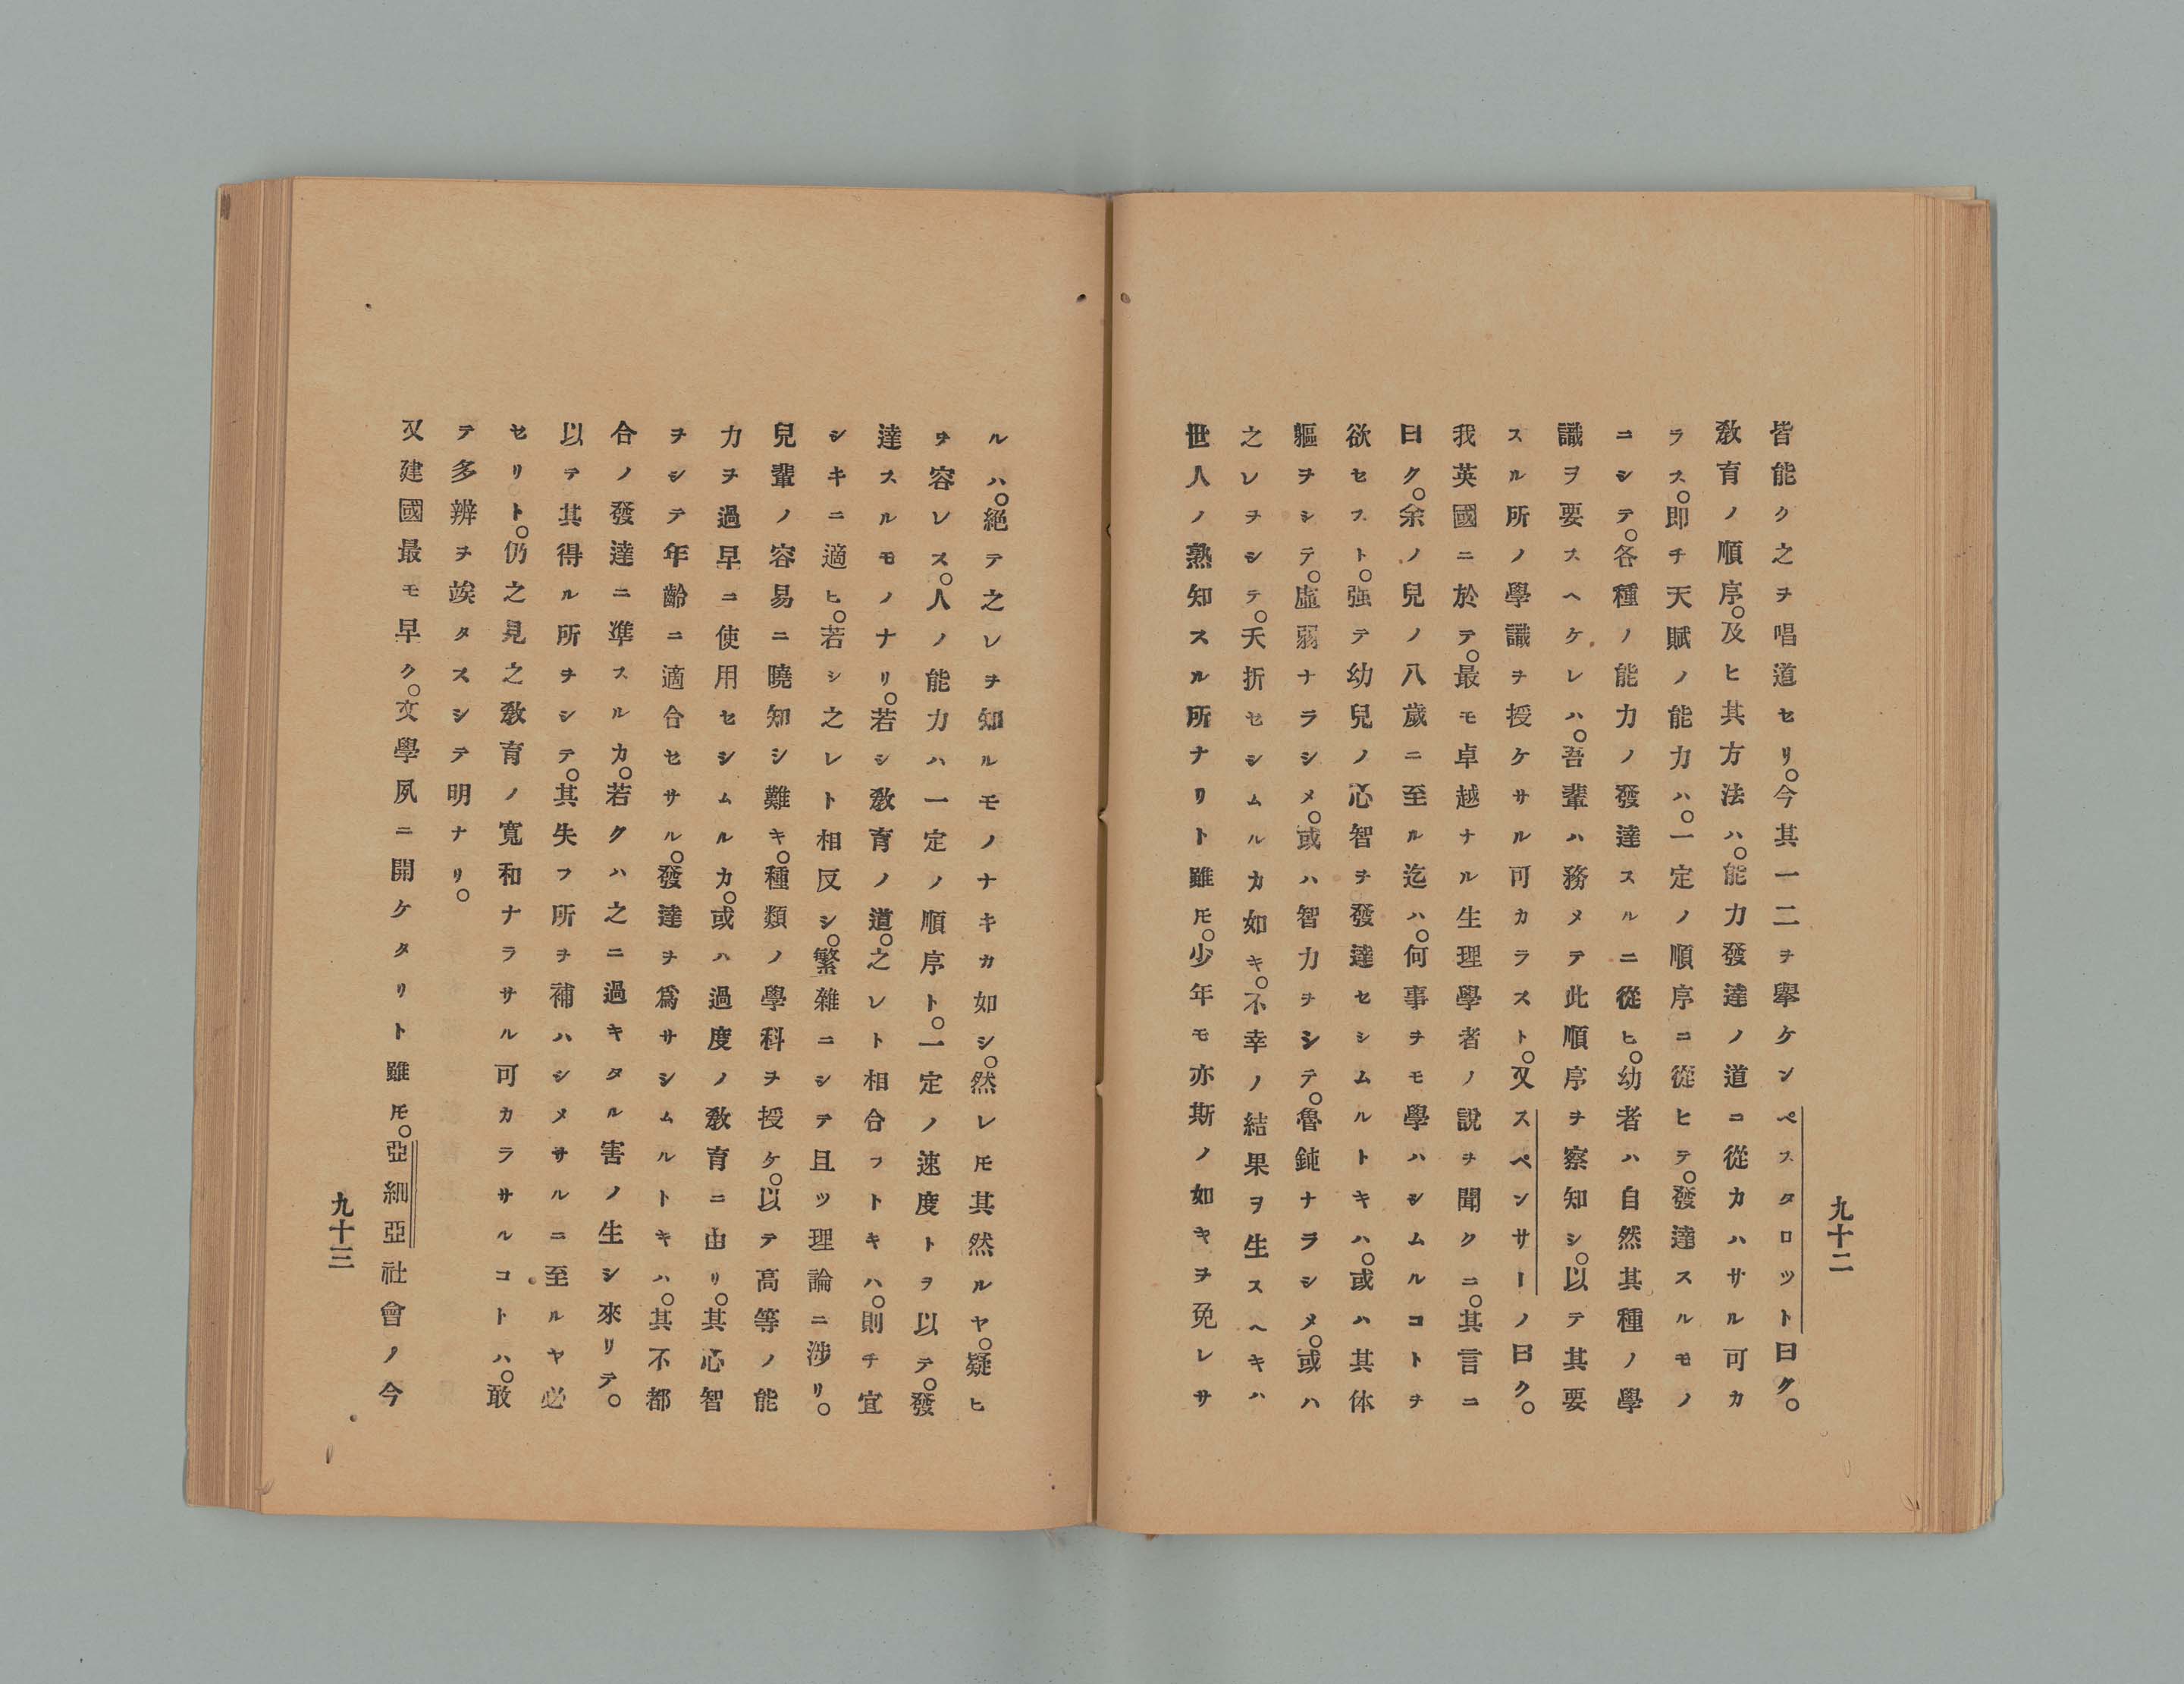 九十二
皆能ク之ヲ唱道セリ。今其一二ヲ擧ケンペスタロット曰ク。
敎育ノ順序。及ヒ其方法ハ。能力發達ノ道ニ從カハサル可カ
ラス。即チ天賦ノ能力ハ。一定ノ順序ニ從ヒテ。發達スルモノ
ニシテ。各種ノ能力ノ發達スルニ從ヒ。幼者ハ自然其種ノ學
識ヲ要スヘケレハ。吾輩ハ務メテ此順序ヲ察知シ。以テ其要
スル所ノ學識ヲ授ケサル可カラスト。又スペンサーノ曰ク。
我英國ニ於テ。最モ卓越ナル生理學者ノ說ヲ聞クニ。其言ニ
曰ク。余ノ兒ノ八歲ニ至ル迄ハ。何事ヲモ學ハシムルコトヲ
欲セスト。强テ幼兒ノ心智ヲ發達セシムルトキハ。或ハ其体
軀ヲシテ。虛弱ナラシメ。或ハ智力ヲシテ。魯鈍ナラシメ。或ハ
之レヲシテ。夭折セシムルカ如キ。不幸ノ結果ヲ生スヘキハ
世人ノ熟知スル所ナリト雖𪜈。少年モ亦斯ノ如キヲ免レサ
ルハ。絕テ之レヲ知ルモノナキカ如シ。然レ𪜈其然ルヤ。疑ヒ
ヲ容レス。人ノ能力ハ一定ノ順序ト。一定ノ速度トヲ以テ。發
達スルモノナリ。若シ敎育ノ道。之レト相合フトキハ。則チ宜
シキニ適ヒ。若シ之レト相反シ。繁雜ニシテ且ツ理論ニ涉リ。
兒輩ノ容易ニ曉知シ難キ。種類ノ學科ヲ授ケ。以テ高等ノ能
力ヲ過早ニ使用セシムルカ。或ハ過度ノ敎育ニ由リ。其心智
ヲシテ年齡ニ適合セサル。發達ヲ爲サシムルトキハ。其不都
合ノ發達ニ準スルカ。若クハ之ニ過キタル害ノ生シ來リテ。
以テ其得ル所ヲシテ。其失フ所ヲ補ハシメサルニ至ルヤ必
セリト。仍之見之敎育ノ寬和ナラサル可カラサルコトハ。敢
テ多辨ヲ竢タスシテ明ナリ。
又建國最モ早ク。文學夙ニ開ケタリト雖𪜈。亞細亞社會ノ今
九十三